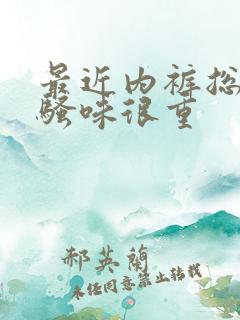 最近内裤总
骚味很重
郝英兰
未经同意禁止转载